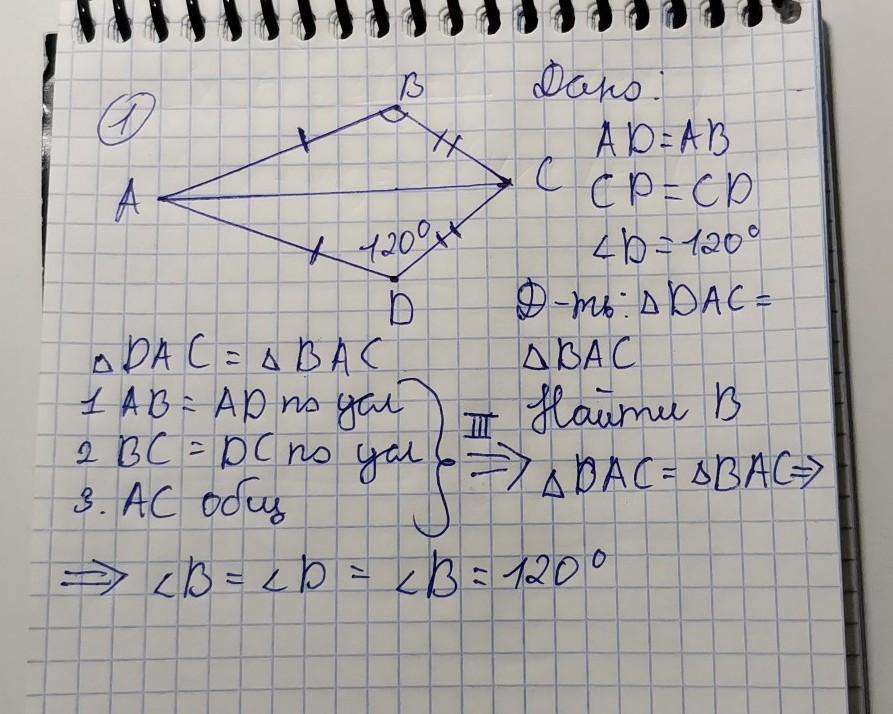 1
B
A
C
120°
D
Дано:
AD=AB
CD=CD
∠D=120°
Д-ть: △DAC =
△BAC
Найти B
△DAC = △BAC
1 AB = AD по усл
2 BC = DC по усл
3. AC общ
III
⇒ △DAC = △BAC ⇒
⇒ ∠B = ∠D = ∠B = 120°